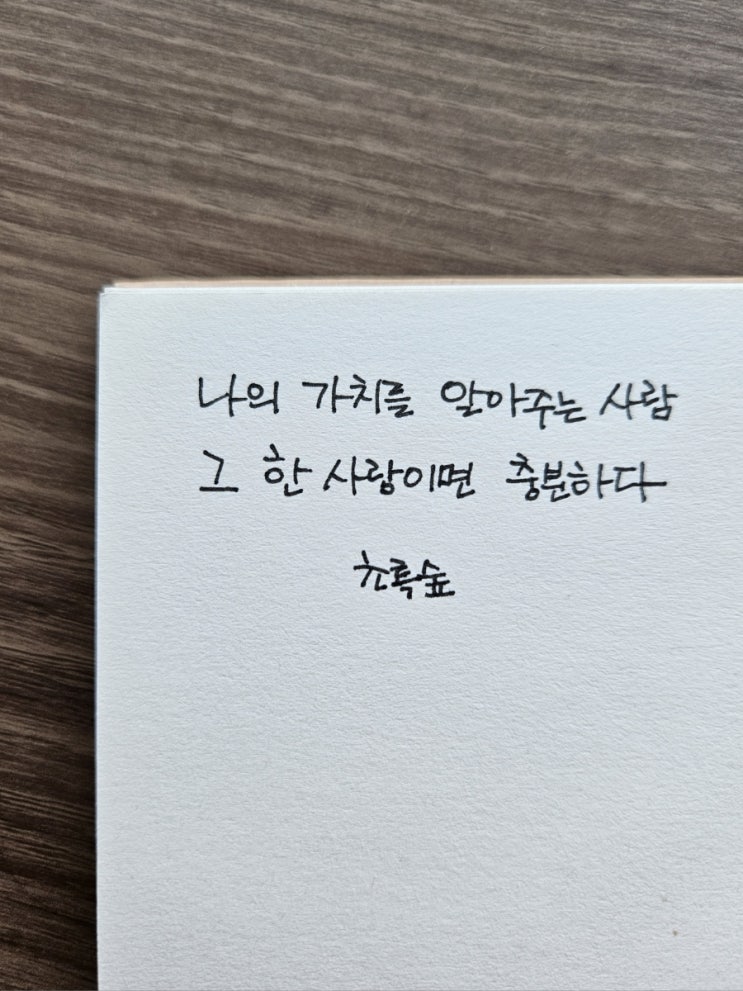 나의 가치를 알아주는 사람
그 한 사람이면 충분하다
초록숲